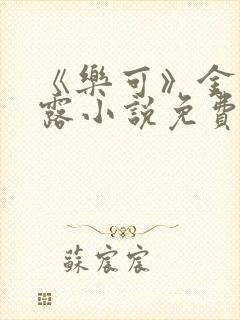 《樂可》金
露小說免費
蘇宸宸